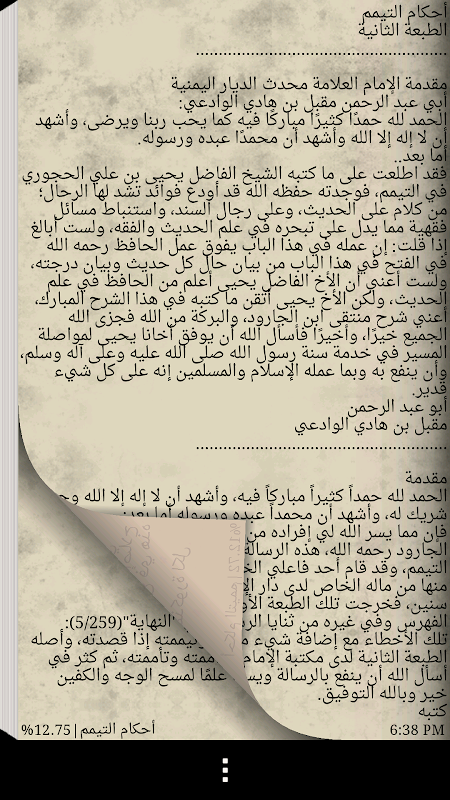 أحكام التيمم
الطبعة الثانية
......................................................
مقدمة الإمام العلامة محدث الديار اليمنية
أبي عبد الرحمن مقبل بن هادي الوادعي:
الحمد لله حمدًا كثيرًا مباركًا فيه كما يحب ربنا ويرضى، وأشهد
أن لا إله إلا الله وأشهد أن محمدًا عبده ورسوله.
أما بعد..
فقد اطلعت على ما كتبه الشيخ الفاضل يحيى بن علي الحجوري
في التيمم، فوجدته حفظه الله قد أودع فوائد تشد لها الرحال؛
من كلام على الحديث، وعلى رجال السند، واستنباط مسائل
فقهية مما يدل على تبحره في علم الحديث والفقه، ولست أبالغ
إذا قلت: إن عمله في هذا الباب يفوق عمل الحافظ رحمه الله
في الفتح في هذا الباب من بيان حال كل حديث وبيان درجته،
ولست أعني أن الأخ الفاضل يحيى أعلم من الحافظ في علم
الحديث، ولكن الأخ يحيى أتقن ما كتبه في هذا الشرح المبارك،
أعني شرح منتقى ابن الجارود، والبركة من الله فجزى الله
الجميع خيرًا، وأخيرًا فأسأل الله أن يوفق أخانا يحيى لمواصلة
المسير في خدمة سنة رسول الله صلى الله عليه وعلى آله وسلم،
وأن ينفع به وبما عمله الإسلام والمسلمين إنه على كل شيء
قدير.
أبو عبد الرحمن
مقبل بن هادي الوادعي
......................................................
مقدمة
الحمد لله حمداً كثيراً مباركاً فيه، وأشهد أن لا إله إلا الله
شريك له، وأشهد أن محمداً عبده ورسوله أما بعد:
فإن مما يسر الله لي إفراده من
الجارود رحمه الله، هذه الرسالة
التيمم، وقد قام أحد فاعلي
منها من ماله الخاص لدى دار
سنين، فخرجت تلك الطبعة
الفهرس وفي غيره من ثنايا "النهاية"(5/259):
تلك الأخطاء مع إضافة شيء وتيممته إذا قصدته، وأصله
الطبعة الثانية لدى مكتبة الإمام وتأممته، ثم كثر في
أسأل الله أن ينفع بالرسالة علمًا لمسح الوجه والكفين
خير وبالله التوفيق.
كتبه
%12.75|أحكام التيمم 6:38 PM